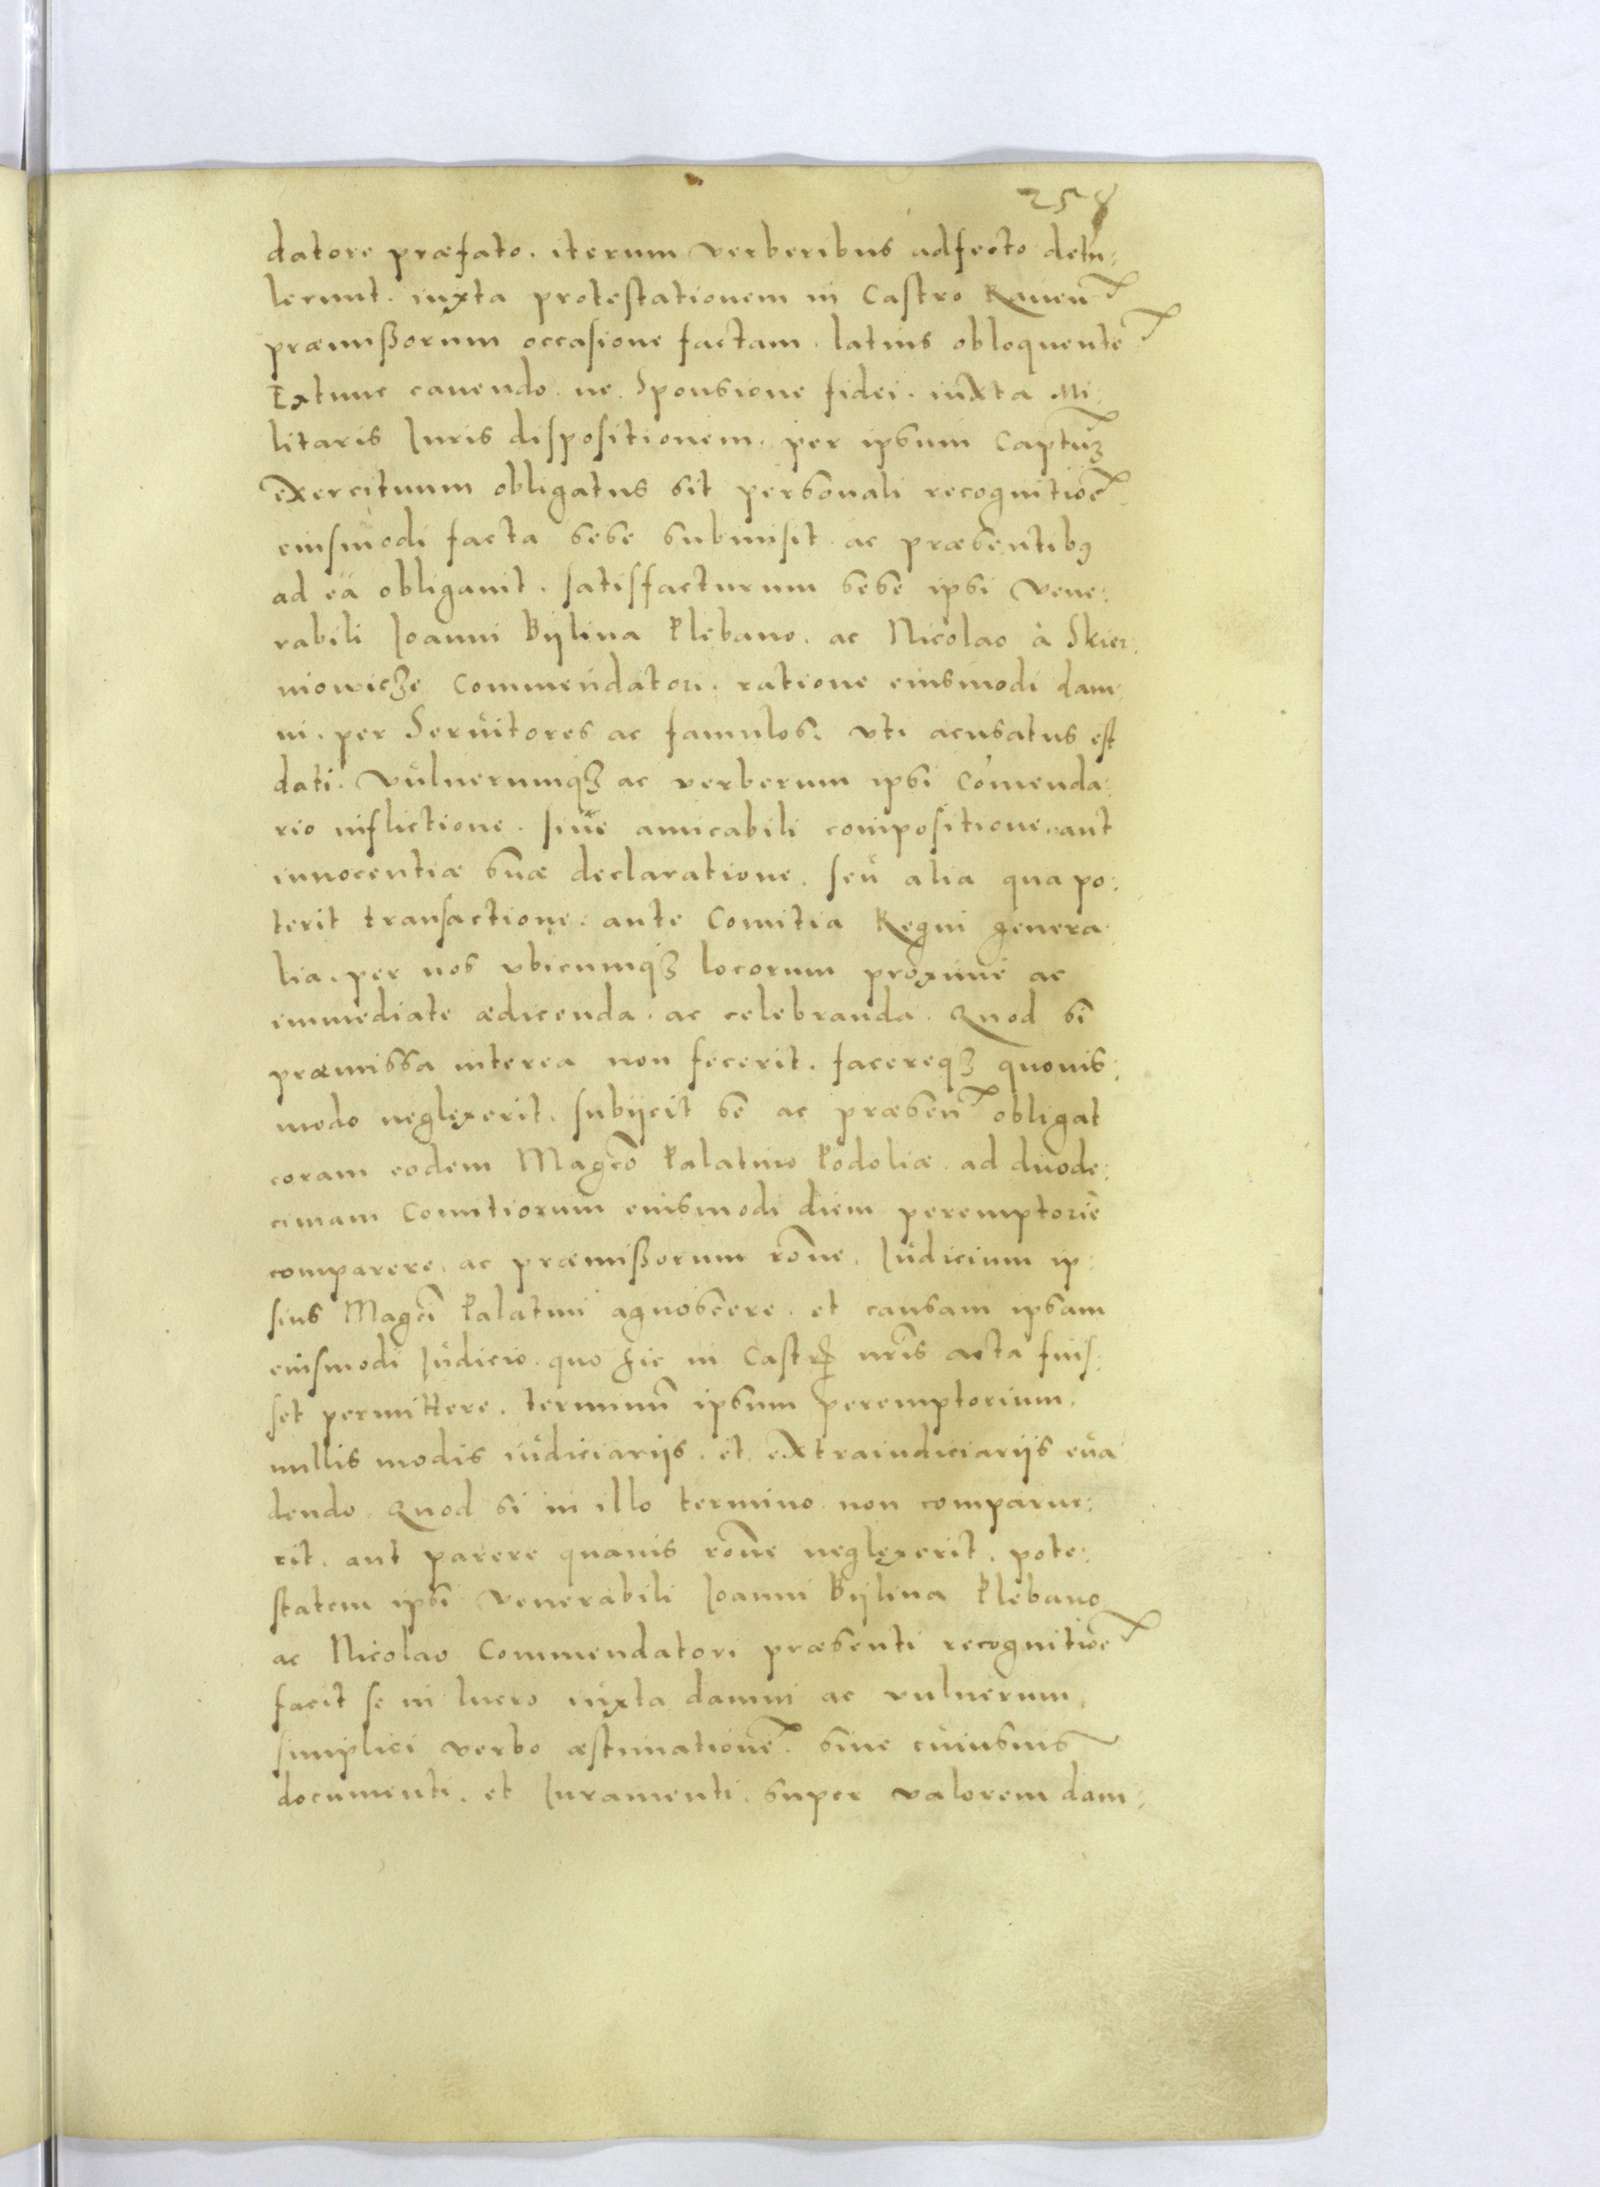 258
datore præfato. iterum verberibus adfecto detu:
lerunt. iuxta protestationem in Castro Rauen̄
præmißorum occasione factam. latius obloquente
Extunc cauendo. ne Sponsione fidei. iuxta Mi:
litaris Iuris dispositionem. per ipsum Captuꝫ
exercituum obligatus sit personali recognitiōe
eiusmodi facta sese submisit. ac præsentibꝯ
ad eā obligauit. satisfacturum sese ipsi Vene:
rabili Ioanni Bÿlina Plebano. ac Nicolao à Skier:
niowicze Commendatori. ratione eiusmodi dam:
ni. per Seruitores ac famulos. vti acusatus est
dati. vulnerumqꝫ ac verberum ipsi Com̄enda:
rio inflictione. siue amicabili compositione. aut
innocentiæ suæ declaratione. seu alia qua po:
terit transactione. ante Comitia Regni genera:
lia. per nos vbicumqꝫ locorum proximè ac
immediate ædicenda. ac celebranda. Quod si
præmissa interea non fecerit. facereqꝫ quouis:
modo neglexerit. subijcit se ac præsen̄ obligat
coram eodem Magc̄o Palatino Podoliæ. ad duode:
cimam Comitiorum eiusmodi diem peremptoriè
comparere. ac præmißorum rōne. Iudicium ip:
sius Magc̄i Palatini agnoscere. et causam ipsam
eiusmodi Iudicio. quo sic in Castrꝭ nr̄is acta fuis:
set permittere. terminū ipsum peremptorium.
nullis modis iudiciarijs. et extraiudiciarijs eua
dendo. Quod si in illo termino non comparue:
rit. aut parere quauis rōne neglexerit. pote:
statem ipsi Venerabili Ioanni Bÿlina Plebano
ac Nicolao Commendatori præsenti recognitiōe
facit se in lucro iuxta damni ac vulnerum.
simplici verbo æstimationē. sine cuiusuis
documenti. et Iuramenti. super valorem dam: